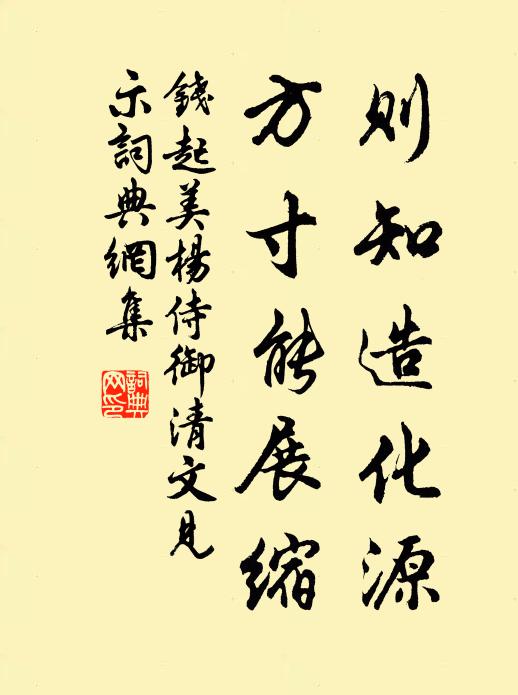 则知造化源
方寸能展缩
錢起美楊侍御清文見
示詞典網集
詞典网印